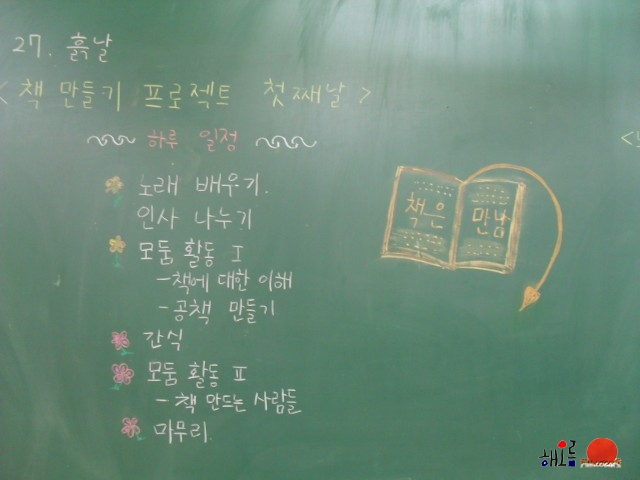 27. 흙날
< 책 만들기 프로젝트 첫째날 >
하루 일정
노래 배우기.
인사 나누기
모둠 활동 I
- 책에 대한 이해
- 공책 만들기
간식
모둠 활동 II
- 책 만드는 사람들
마무리
책은 만남
해오름